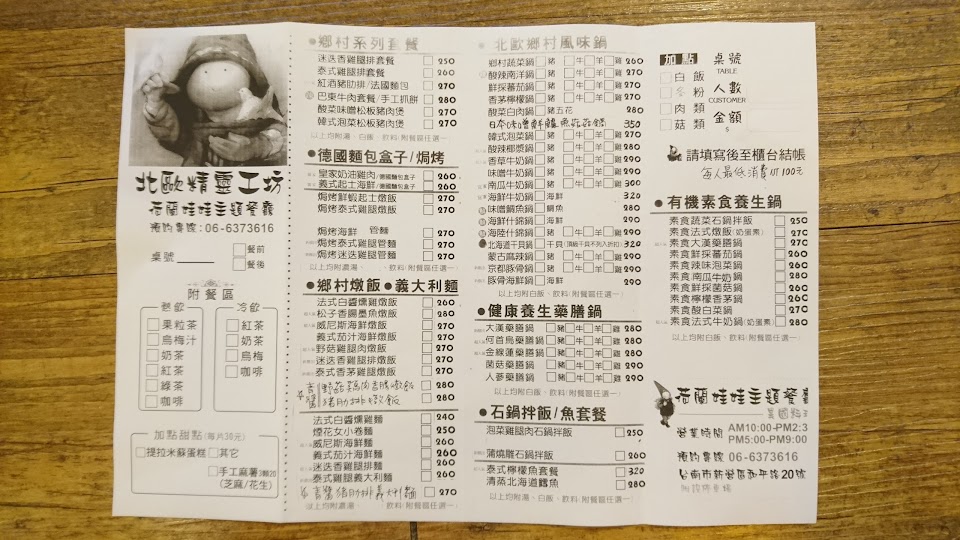 北歐精靈工坊
荷蘭娃娃主題餐廳
預約專線:06-6373616
桌號
餐前
餐後
附餐區
熱飲
冷飲
果粒茶
烏梅汁
奶茶
紅茶
綠茶
咖啡
紅茶
奶茶
烏梅
咖啡
加點甜點(每片30元)
提拉米蘇蛋糕 其它
手工麻薯3顆20
(芝麻/花生)
●鄉村系列套餐
迷迭香雞腿排套餐 250
泰式雞腿排套餐 260
紅酒豬肋排/法國麵包 270
巴東牛肉套餐/手工抓餅 280
酸菜味噌松板豬肉煲 270
韓式泡菜松板豬肉煲 270
以上均附湯、白飯、飲料(附餐區任選一)
●德國麵包盒子/焗烤
皇家奶油雞肉/德國麵包盒子 260
義式起士海鮮/德國麵包盒子 260
焗烤鮮蝦起士燉飯 270
焗烤泰式雞腿燉飯 270
焗烤海鮮 管麵 270
焗烤泰式雞腿管麵 270
焗烤迷迭香雞腿管麵 270
以上均附濃湯、飲料(附餐區任選一)
●鄉村燉飯●義大利麵
法式白醬燻雞燉飯 260
松子香腸墨魚燉飯 280
威尼斯海鮮燉飯 270
義式茄汁海鮮燉飯 270
野菇雞腿肉燉飯 280
迷迭香雞腿排燉飯 260
泰式香茅雞腿燉飯 270
280
270
法式白醬燻雞麵 240
煙花女小卷麵 250
威尼斯海鮮麵 260
義式茄汁海鮮麵 260
迷迭香雞腿排麵 260
泰式雞腿義大利麵 260
青醬豬肋排義大利麵 270
以上均附濃湯、飲料(附餐區任選一)
●北歐鄉村風味鍋
鄉村蔬菜鍋 豬 牛 羊 雞 260
酸辣南洋鍋 豬 牛 羊 雞 270
鮮採蕃茄鍋 豬 牛 羊 雞 270
香茅檸檬鍋 豬 牛 羊 雞 270
酸菜白肉鍋 豬五花 280
350
韓式泡菜鍋 豬 牛 羊 雞 270
酸辣椰漿鍋 豬 牛 羊 雞 280
香草牛奶鍋 豬 牛 羊 雞 290
味噌牛奶鍋 豬 牛 羊 雞 290
南瓜牛奶鍋 豬 牛 羊 雞 300
海鮮牛奶鍋 海鮮 320
味噌鯛魚鍋 鯛魚 280
海鮮什錦鍋 海鮮 290
海陸什錦鍋 豬 牛 羊 雞 290
北海道干貝鍋 干貝(頂級干貝不列入折扣) 320
蒙古麻辣鍋 豬 牛 羊 雞 290
京都豚骨鍋 豬 牛 羊 雞 290
豚骨海鮮鍋 海鮮 290
以上均附白飯、飲料(附餐區任選一)
●健康養生藥膳鍋
大漢藥膳鍋 豬 牛 羊 雞 280
何首烏藥膳鍋 豬 牛 羊 雞 280
金線蓮藥膳鍋 豬 牛 羊 雞 280
菌菇藥膳鍋 豬 牛 羊 雞 290
人蔘藥膳鍋 豬 牛 羊 雞 290
以上均附白飯、飲料(附餐區任選一)
●石鍋拌飯/魚套餐
泡菜雞腿肉石鍋拌飯 250
蒲燒雕石鍋拌飯 260
泰式檸檬魚套餐 270
清蒸北海道鱈魚 280
以上均附湯、白飯、飲料(附餐區任選一)
加點
白飯
冬粉
肉類
菇類
桌號
TABLE
人數
CUSTOMER
金額
$
請填寫後至櫃台結帳
每人最低消費NT100元
●有機素食養生鍋
素食蔬菜石鍋拌飯 250
素食法式燉飯(奶蛋素) 270
素食大漢藥膳鍋 270
素食鮮採蕃茄鍋 260
素食辣味泡菜鍋 260
素食南瓜牛奶鍋 280
素食鮮採菌菇鍋 260
素食檸檬香茅鍋 260
素食酸白菜鍋 270
素食法式牛奶鍋(奶蛋素) 280
以上均附白飯、飲料(附餐區任選一)
荷蘭娃娃主題餐廳
營業時間 AM10:00-PM2:3
PM5:00-PM9:00
預約專線 06-6373616
台南市新營區西平路20號